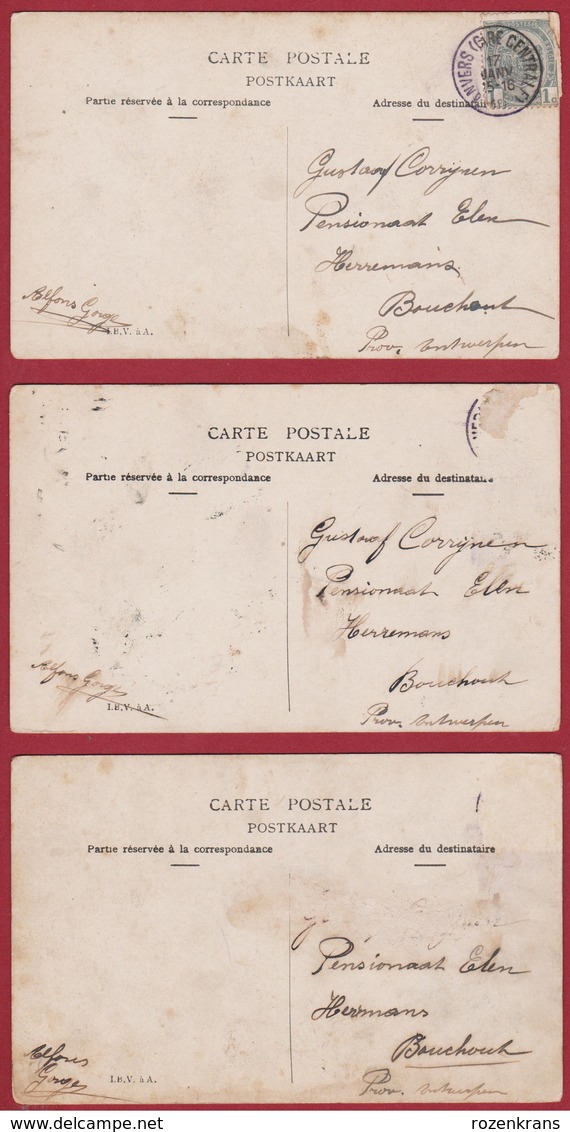 CARTE POSTALE
POSTKAART
Partie réservée à la correspondance
Adresse du destinatai
ANVERS (GARE CENTRALE)
17
JANV
15-16
1c
Gustaaf Corrynen
Pensionaat Elen
Herremans
Bouchout
Prov. Antwerpen
Alfons Gorge
I.B.V. à A.
CARTE POSTALE
POSTKAART
Partie réservée à la correspondance
Adresse du destinataire
Gustaaf Corrynen
Pensionaat Elen
Herremans
Bouchout
Prov. Antwerpen
Alfons Gorge
I.B.V. à A.
CARTE POSTALE
POSTKAART
Partie réservée à la correspondance
Adresse du destinataire
Pensionaat Elen
Herrmans
Bouchout
Prov. Antwerpen
Alfons
Gorge
I.B.V. à A.
rozenkrans